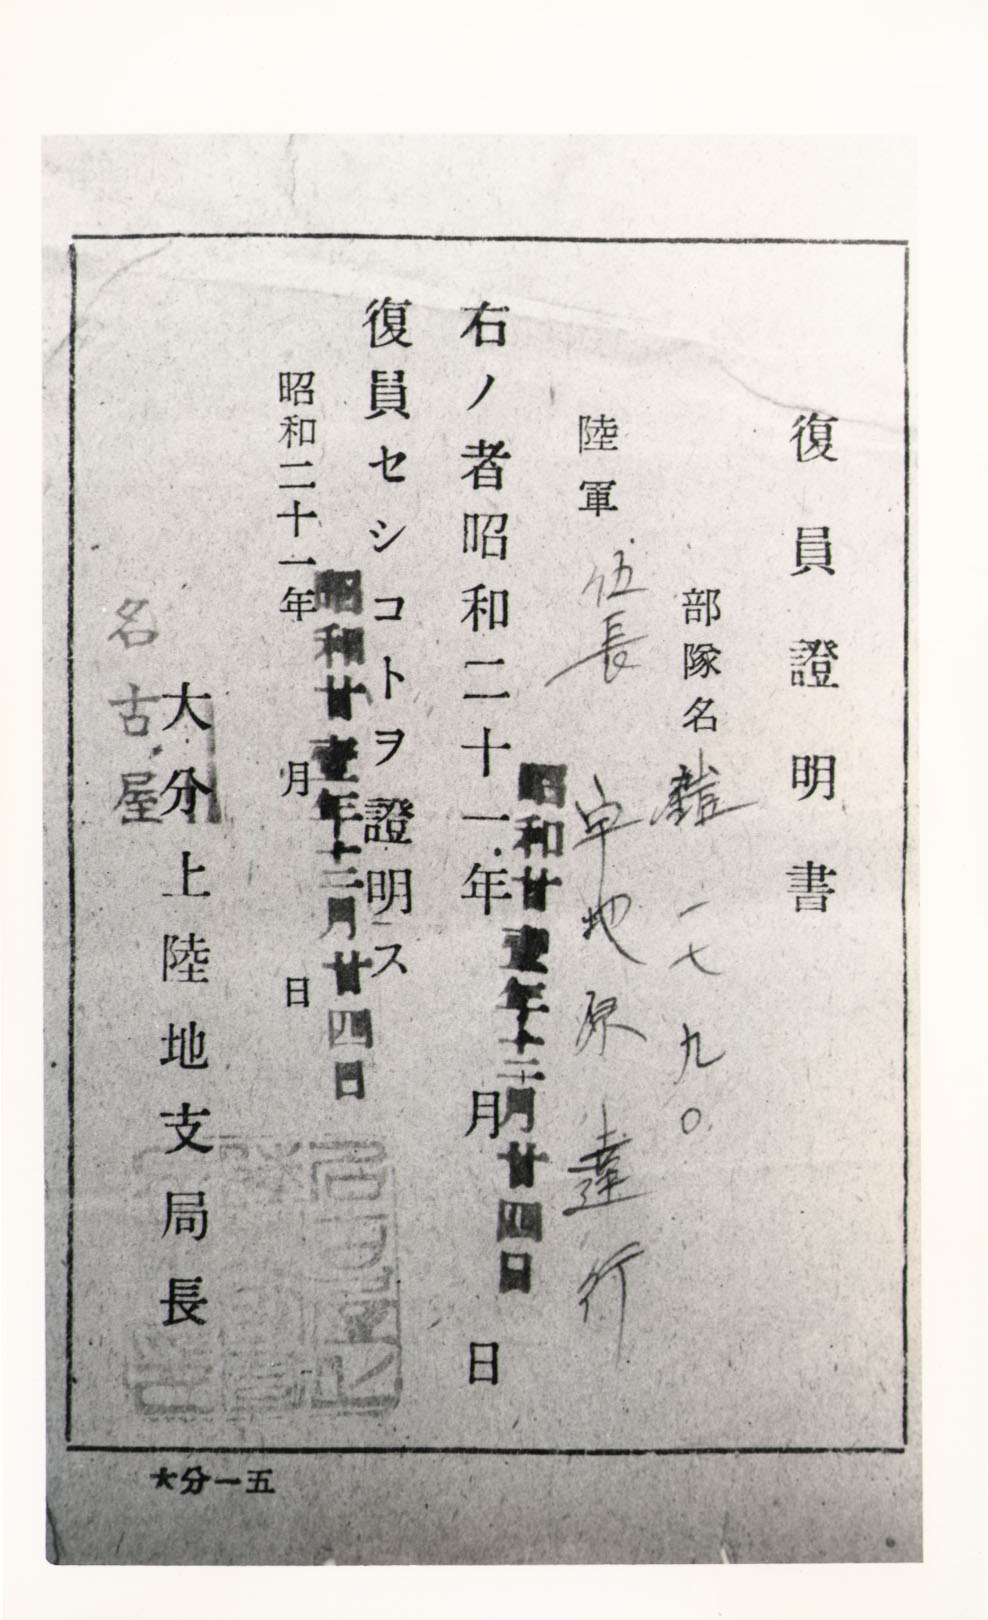 復員證明書
部隊名 鎧 一七九〇
陸軍 伍長 宇地原 達行
昭和廿壹年十二月廿四日
右ノ者昭和二十一年 月 日
復員セシコトヲ證明ス
昭和廿壹年十二月廿四日
昭和二十一年 月 日
大分上陸地支局長
名古屋
大分一五